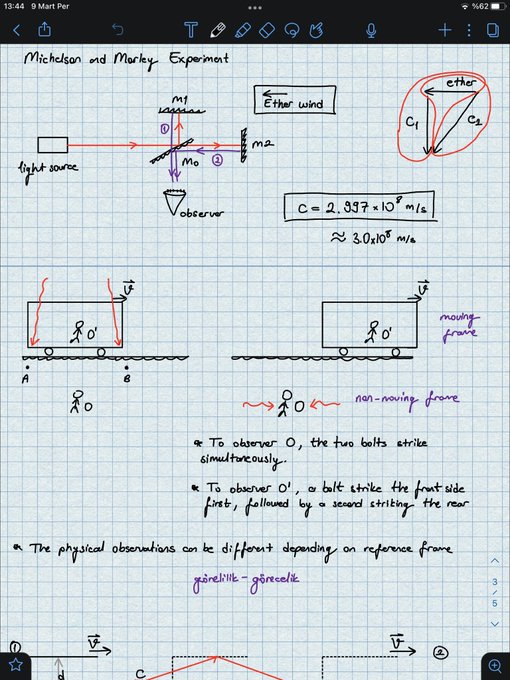 13:44 9 Mart Per
%62
Michelson and Morley Experiment
M1
Ether wind
ether
C1
C2
1
M2
M0
2
light source
observer
C = 2.997×10⁸ m/s
≈ 3.0×10⁸ m/s
v
v
O'
O'
moving
frame
A
B
O
O
non-moving frame
* To observer O, the two bolts strike
simultaneously.
* To observer O', a bolt strike the front side
first, followed by a second striking the rear
* The physical observations can be different depending on reference frame
görelilik - görecelik
3
/
5
1
v
v
2
d
C